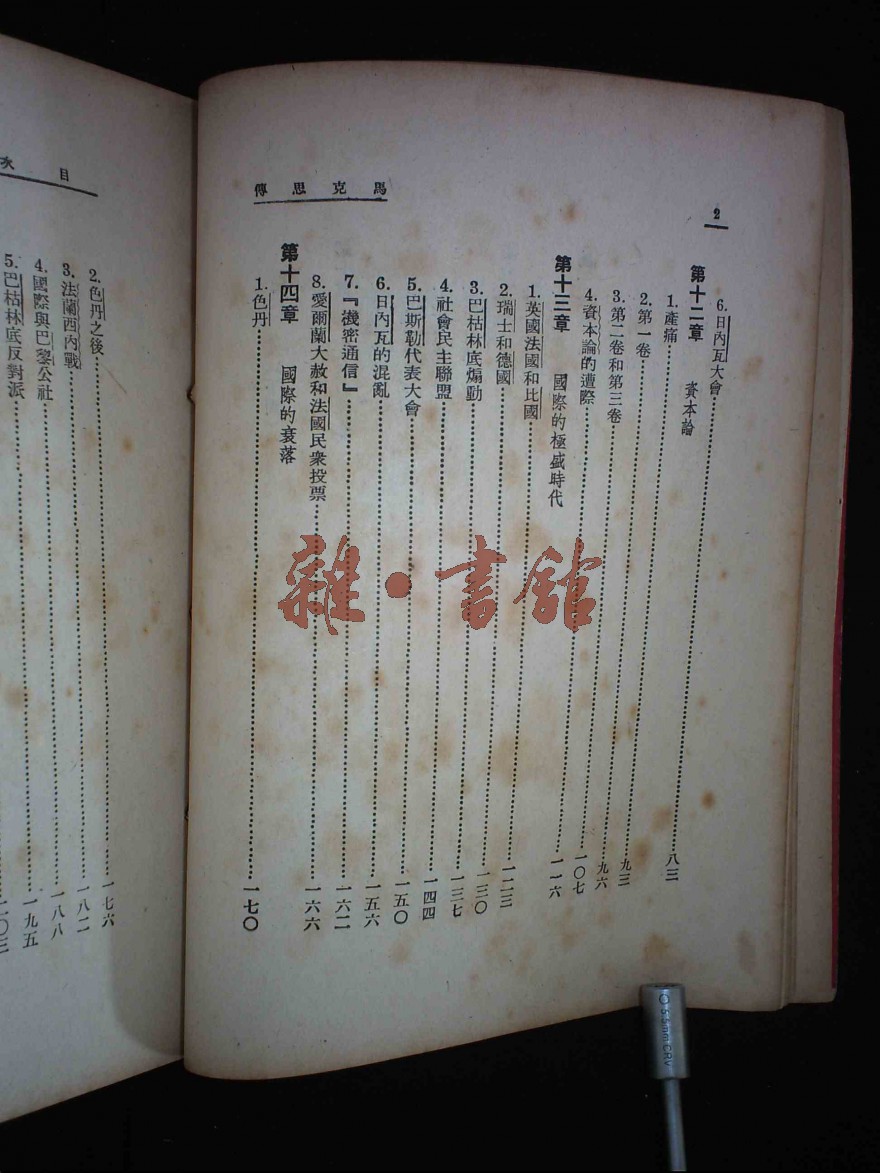 馬克思傳
2
6. 日內瓦大會……八三
第十二章 資本論
1. 產痛……九三
2. 第一卷……九六
3. 第二卷和第三卷……一〇七
4. 資本論的遭際……一一六
第十三章 國際的極盛時代
1. 英國法國和比國……一二三
2. 瑞士和德國……一三〇
3. 巴枯林底煽動……一三七
4. 社會民主聯盟……一四四
5. 巴斯勒代表大會……一五〇
6. 日內瓦的混亂……一五六
7. 『機密通信』……一六二
8. 愛爾蘭大赦和法國民衆投票……一六六
第十四章 國際的衰落
1. 色丹……一七〇
目次
2. 色丹之後……一七六
3. 法蘭西內戰……一八二
4. 國際與巴黎公社……一八八
5. 巴枯林底反對派……一九五
二〇三
雜·書館
5.5mm CRV